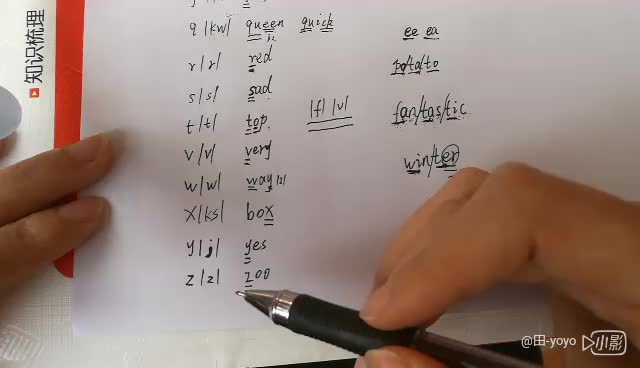 知识梳理
q |kw| queen quick
r |r| red
s |s| sad
t |t| top
v |v| very
w |w| way
x |ks| box
y |j| yes
z |z| zoo
|f| |v|
ee ea
po/ta/to
fan/tas/tic
win/ter
@田-yoyo 小影